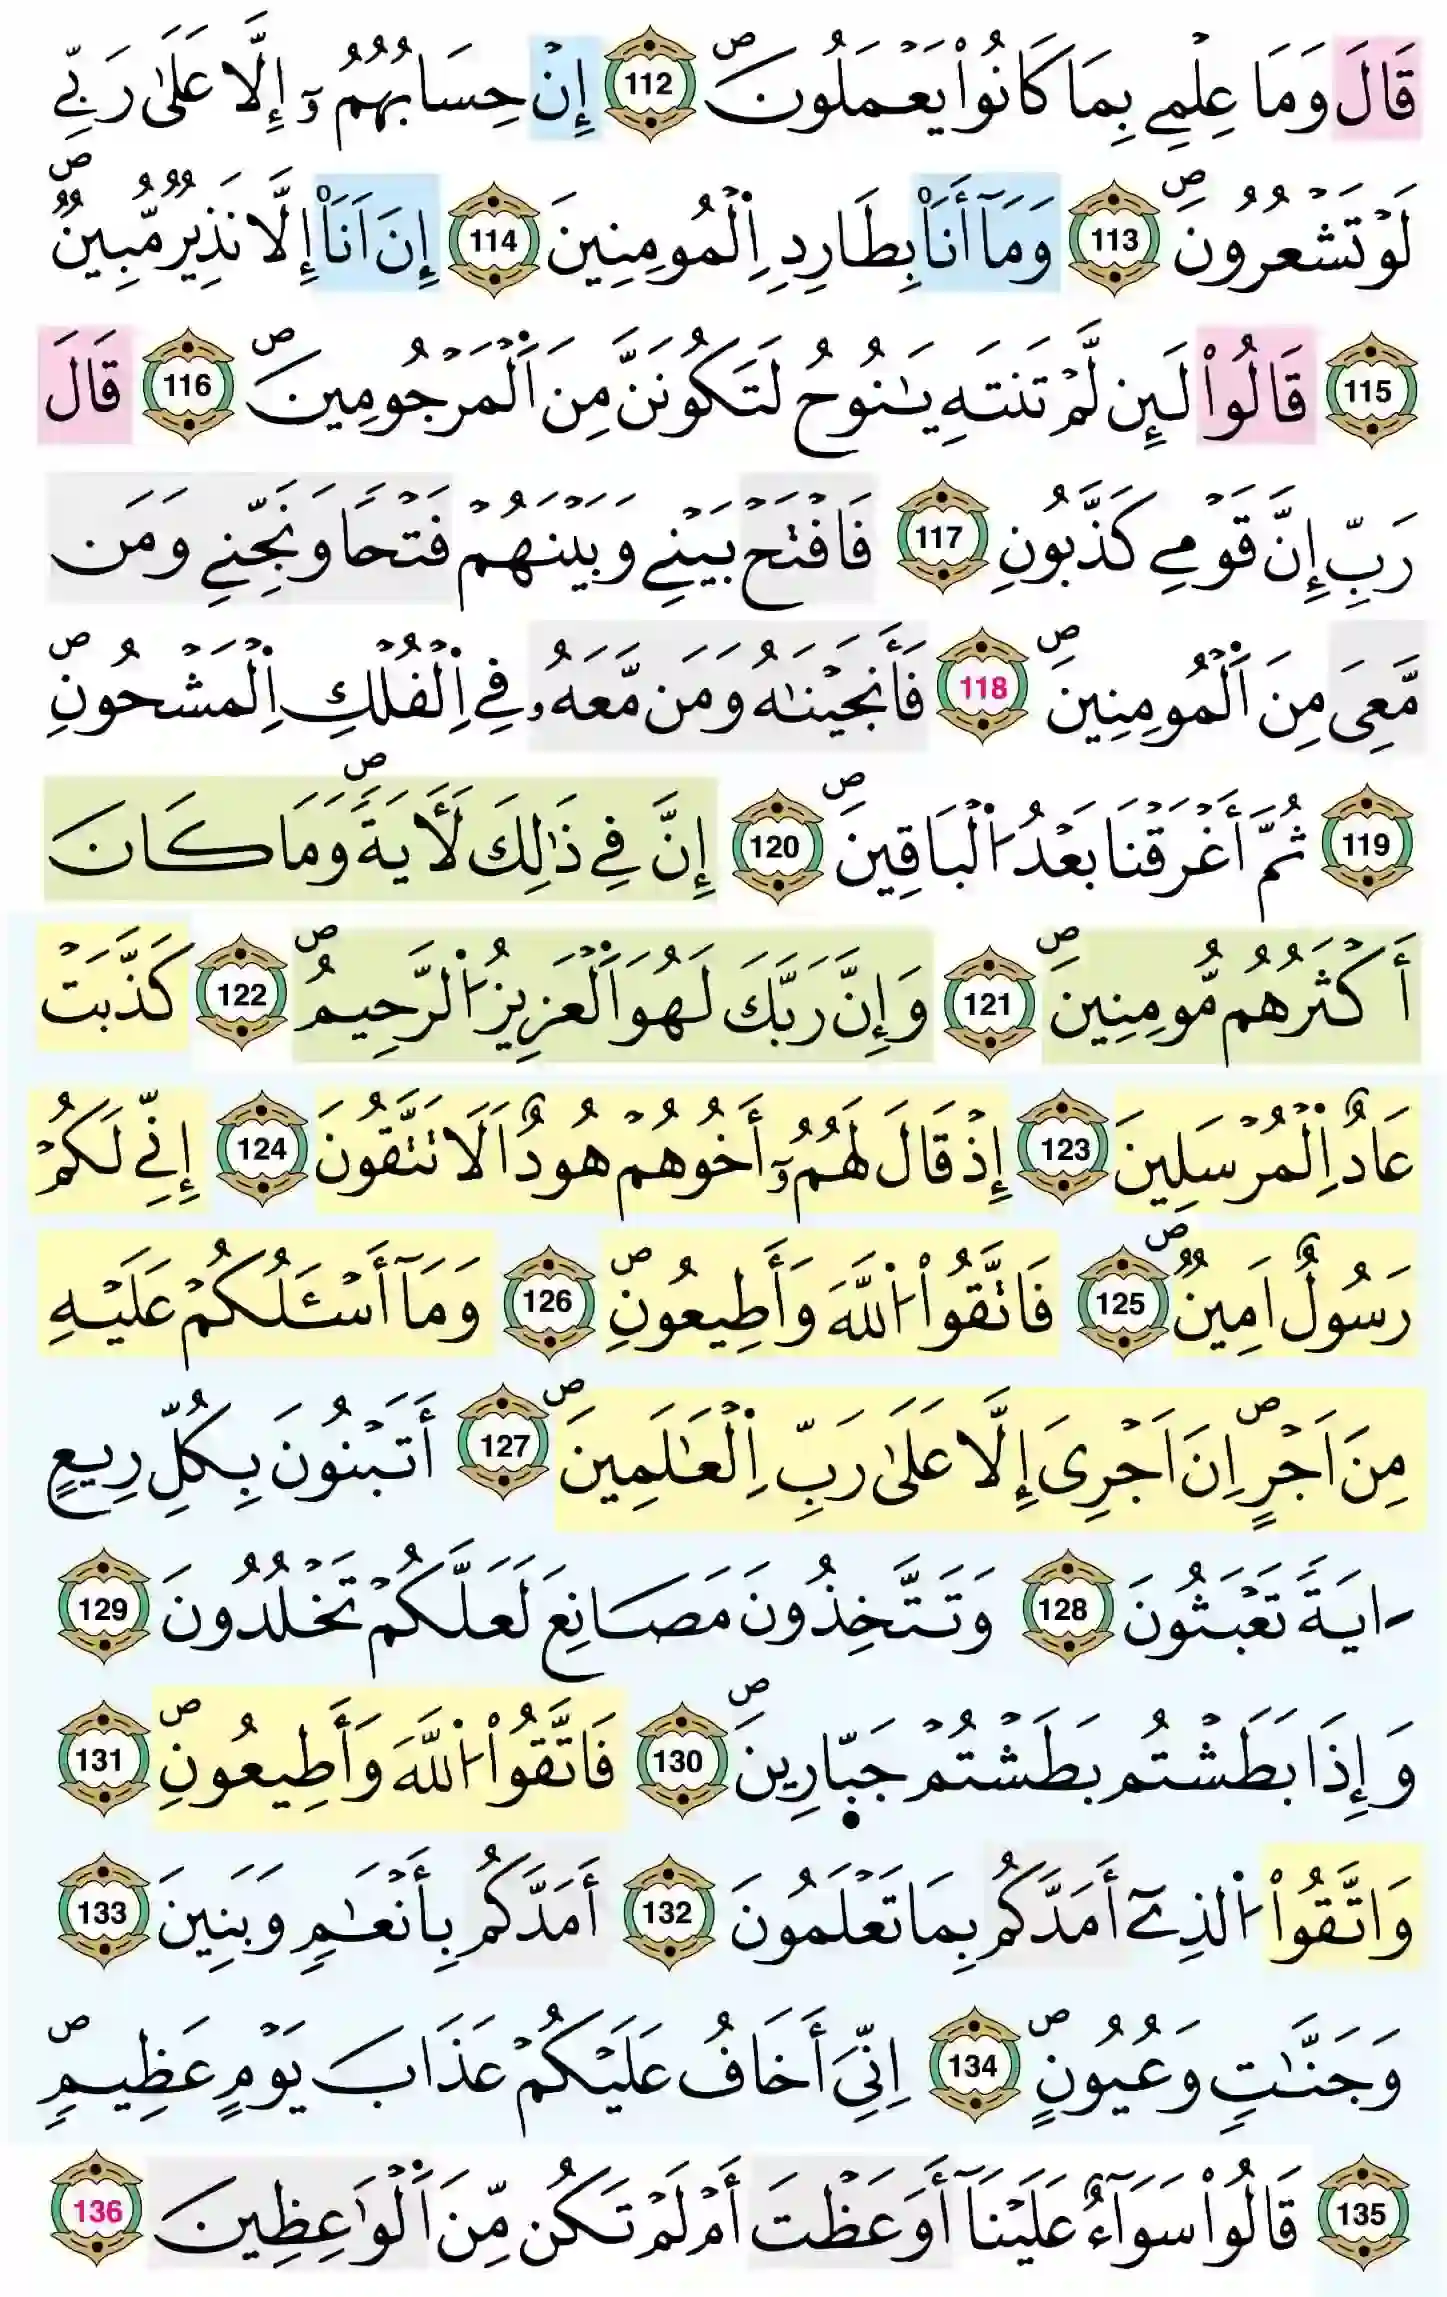 قَالَ وَمَا عِلْمِے بِمَا كَانُواْ يَعْمَلُونَۖ 112 إِنْ حِسَابُهُمُۥٓ إِلَّا عَلَىٰ رَبِّے
لَوْ تَشْعُرُونَۖ 113 وَمَآ أَنَا۠ بِطَارِدِ اِ۬لْمُومِنِينَ 114 إِنَ اَنَا۠ إِلَّا نَذِيرٞ مُّبِينٞۖ
115 قَالُواْ لَئِن لَّمْ تَنتَهِ يَٰنُوحُ لَتَكُونَنَّ مِنَ اَ۬لْمَرْجُومِينَۖ 116 قَالَ
رَبِّ إِنَّ قَوْمِے كَذَّبُونِ 117 فَافْتَحْ بَيْنِے وَبَيْنَهُمْ فَتْحاٗ وَنَجِّنِے وَمَن
مَّعِىَ مِنَ اَ۬لْمُومِنِينَۖ 118 فَأَنجَيْنَٰهُ وَمَن مَّعَهُۥ فِے اِ۬لْفُلْكِ اِ۬لْمَشْحُونِۖ
119 ثُمَّ أَغْرَقْنَا بَعْدُ اُ۬لْبَاقِينَۖ 120 إِنَّ فِے ذَٰلِكَ لَأٓيَةٗۖ وَمَا كَانَ
أَكْثَرُهُم مُّومِنِينَۖ 121 وَإِنَّ رَبَّكَ لَهُوَ اَ۬لْعَزِيزُ اُ۬لرَّحِيمُۖ 122 كَذَّبَتْ
عَادٌ اِ۬لْمُرْسَلِينَ 123 إِذْ قَالَ لَهُمُۥٓ أَخُوهُمْ هُودٌ اَلَا تَتَّقُونَ 124 إِنِّے لَكُمْ
رَسُولٌ اَمِينٞۖ 125 فَاتَّقُواْ اُ۬للَّهَ وَأَطِيعُونِۖ 126 وَمَآ أَسْـَٔلُكُمْ عَلَيْهِ
مِنَ اَجْرٍۖ اِنَ اَجْرِىَ إِلَّا عَلَىٰ رَبِّ اِ۬لْعَٰلَمِينَۖ 127 أَتَبْنُونَ بِكُلِّ رِيعٍ
ـَايَةٗ تَعْبَثُونَ 128 وَتَتَّخِذُونَ مَصَانِعَ لَعَلَّكُمْ تَخْلُدُونَ 129
وَإِذَا بَطَشْتُم بَطَشْتُمْ جَبّ۪ارِينَۖ 130 فَاتَّقُواْ اُ۬للَّهَ وَأَطِيعُونِۖ 131
وَاتَّقُواْ اُ۬لذِےٓ أَمَدَّكُم بِمَا تَعْلَمُونَ 132 أَمَدَّكُم بِأَنْعَٰمٖ وَبَنِينَ 133
وَجَنَّٰتٖ وَعُيُونٍۖ 134 اِنِّىَ أَخَافُ عَلَيْكُمْ عَذَابَ يَوْمٍ عَظِيمٖۖ
135 قَالُواْ سَوَآءٌ عَلَيْنَآ أَوَعَظْتَ أَمْ لَمْ تَكُن مِّنَ اَ۬لْوَٰعِظِينَ 136